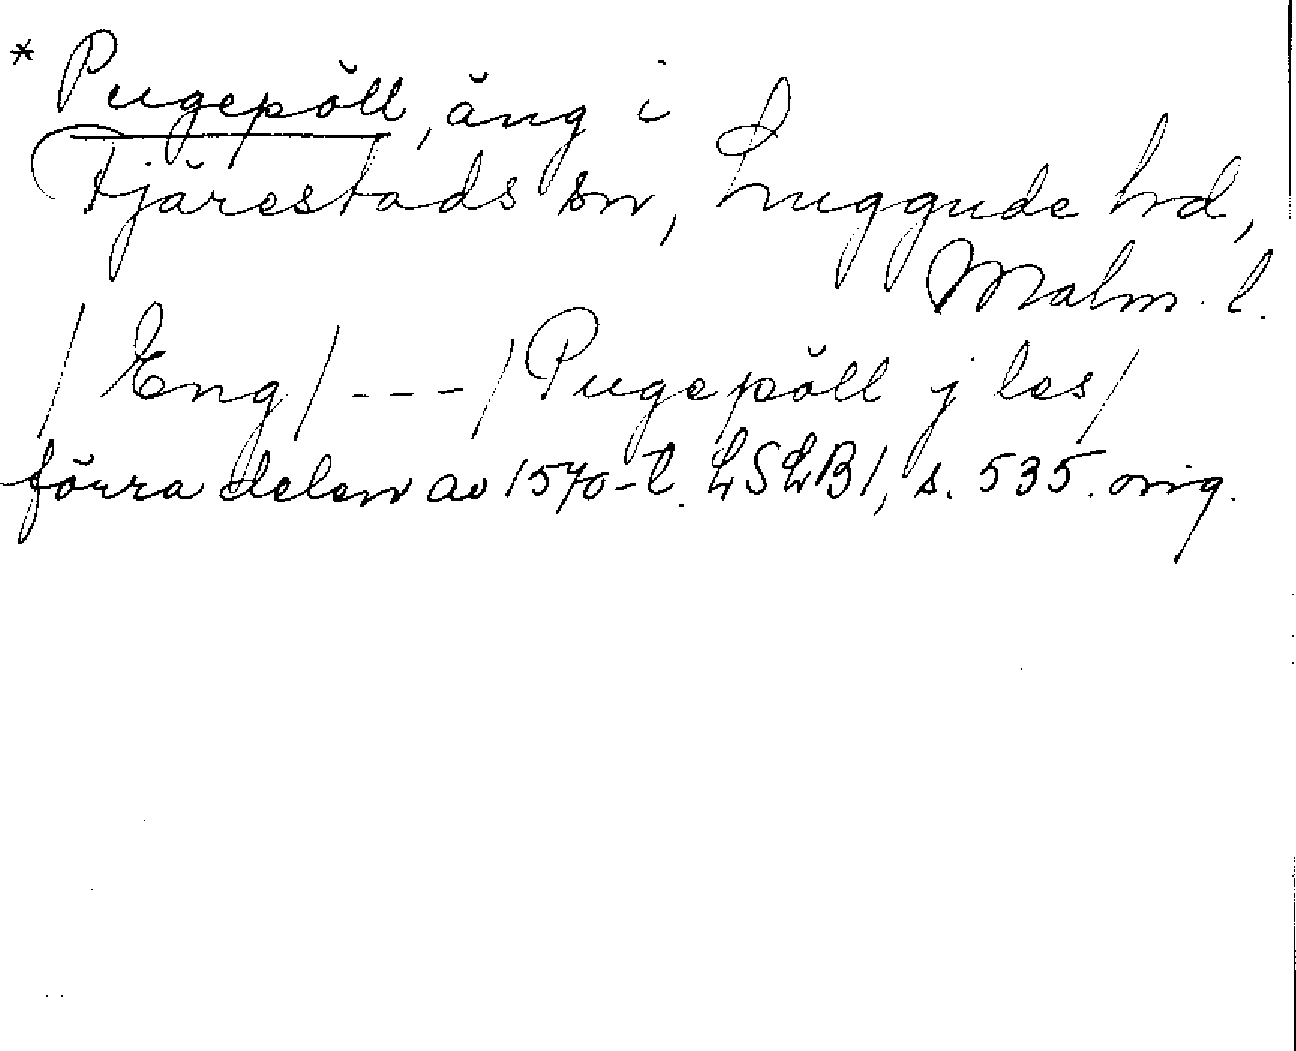 * Pugepöll, äng i
Fjärestads sn, Luggude hd,
Malm. l.
/Eng/ - - - /Pugepöll j les/
förra delen av 1570-t. LSLB1, s. 535. orig.